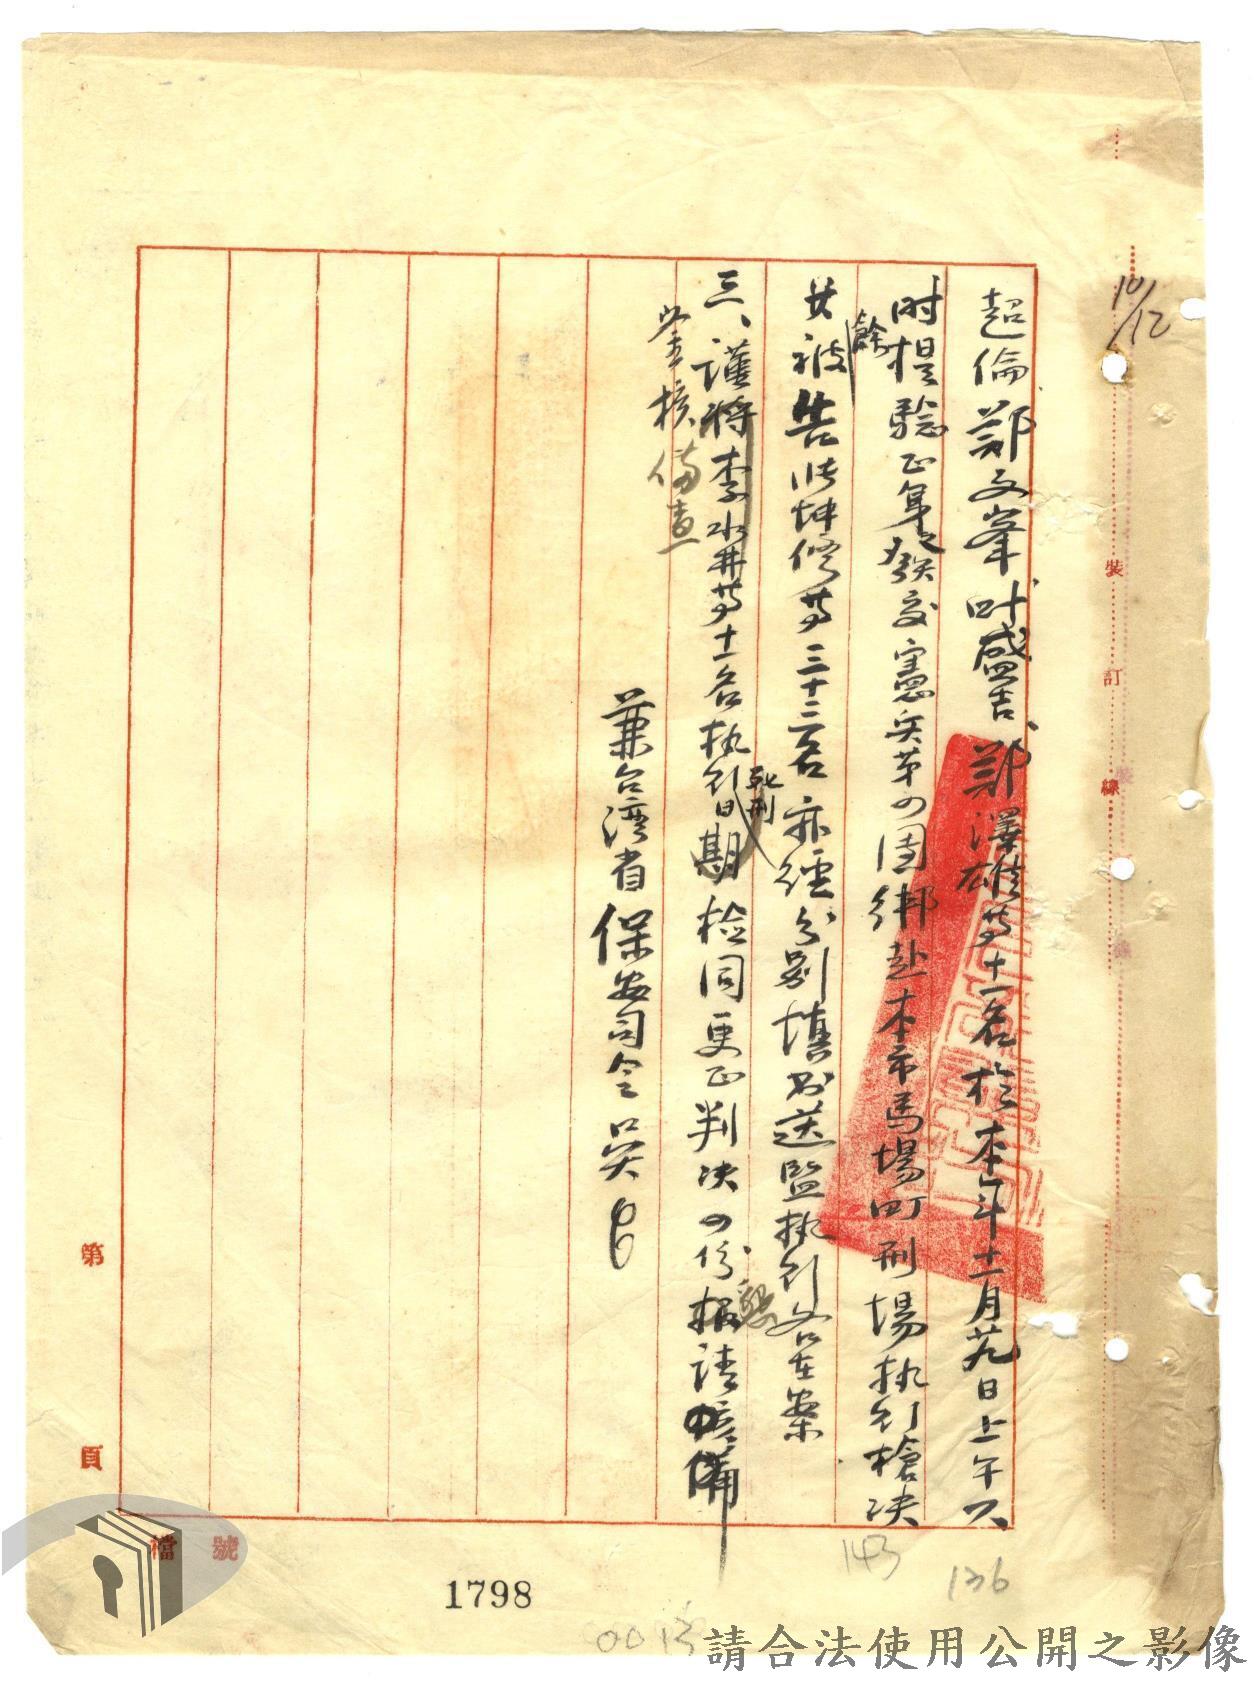 10/12
超倫鄭文峯叶盛吉鄭澤雄等十一名於本年十一月廿九日上午六
時提驗正身發交憲兵第四團綁赴本市馬場町刑場執行槍决
其餘被告張坤修等三十二名亦經分別填書送監執行各在案
三、謹將李水井等十一名執行死刑日期檢同更正判决四份報請
鋻核備查
兼台湾省保安司令吳
裝訂線
第
頁
檔
號
143
136
1798
0013
請合法使用公開之影像